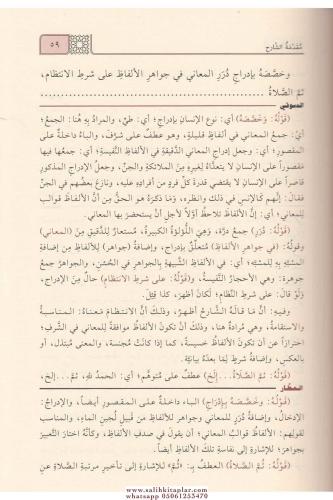 مُقدّمَةُ الشَّارِحِ
٥٩
وخَصَّصَهُ بإدراجِ دُرَرِ المعاني في جواهرِ الألفاظِ على شرطِ الانتظامِ،
ثمَّ الصَّلاةُ
الدسوقي
(قَوْلُهُ: وَخَصَّصَهُ) أي: نوعَ الإنسانِ بإدراجِ؛ أي: طَيِّ، والمرادُ بِهِ هُنا: الجمعُ؛
أيْ: جمعُ المعاني في ألفاظٍ قليلةٍ، وهو عطفٌ على شرَّفَ، والباءُ داخلةٌ على
المقصورِ؛ أي: وجعل إدراجَ المعاني الدَّقيقةِ في الألفاظِ النَّفيسةِ؛ أي: جمعَها فيها
مقصوراً على الإنسانِ لا يتعدَّاهُ لغيرِهِ مِنَ الملائكةِ والجنِّ، وجعلُ الإدراجِ المذكورِ
قاصراً على الإنسانِ لا يقتضي قدرةَ كلِّ فردٍ من أفرادِهِ عليه، ونازعَ بعضُهم في الجنِّ
فقالَ: إنَّهم كالإنسِ في ذلك وانظره، وما ذكرَهُ هو الحقُّ مِن أنَّ الألفاظَ قوالبُ
للمعاني؛ أي: إنَّ الألفاظَ تلاحظُ أوَّلاً لأجلِ أنْ يستحضرَ بها المعاني.
(قَوْلُهُ: دُرَرِ) جمعُ درَّةٍ، وَهِيَ اللُّؤلؤةُ الكبيرةُ، مُستعارٌ للدَّقيقِ مِنَ (المعاني)
وقولُهُ: (في جواهرِ الألفاظِ) مُتعلِّقٌ بإدراجِ، وإضافةُ (جواهر) للألفاظِ مِن إضافةِ
المشبَّهِ بِهِ للمشبَّهِ؛ أي: في الألفاظِ الشَّبيهةِ بالجواهرِ في الحُسْنِ، والجواهرُ جمعُ
جوهرةٍ: وهيَ الأحجارُ النَّفيسةُ، و(قَوْلُهُ: على شرطِ الانتظامِ) حالٌ مِنَ الإدراجِ،
وَلَوْ قالَ: على شرطِ النِّظامِ؛ لكانَ أظهرَ، كذا قيلَ.
وفيهِ: أنَّ مَا قالَهُ الشَّارحُ أظهرُ، وذلكَ أنَّ الانتظامَ مَعناهُ: المناسبةُ
والاستقامةُ، وهيَ مُرادةٌ هنا، وذلكَ أنْ تكونَ الألفاظُ موافقةً للمعاني في الشَّرفِ؛
احترازاً عن أنْ تكونَ الألفاظُ خسيسةً، كما إذا كانتْ مُجنَّسةً، والمعنى مُبتذل، أو
بالعكسِ، وإضافةُ شرطٍ لِمَا بعدَهُ بيانيَّة.
(قَوْلُهُ: ثمَّ الصَّلاةُ... إلخ) عطفٌ على مُتوهَّمٍ؛ أي: الحمدُ للهِ، ثمَّ ...إلخ،
العطار
(قَوْلُهُ: وخَصَّصَهُ بِإدْرَاجِ) الباء داخلةٌ على المقصورِ أيضاً، والإدراجُ:
الإدخالُ، وإضافةُ دُرَرٍ للمعاني وجواهرَ للألفاظِ مِن قَبيلِ لُجينِ الماءِ، والمناسبُ
لقولِهِم: الألفاظُ قوالبُ المعاني؛ أن يقولَ في صدفِ الألفاظِ، وكأنَّهُ اختارَ التَّعبيرَ
بجواهرَ؛ للإشارةِ إلى نفاسةِ تلكَ الألفاظِ أيضاً.
(قَوْلُهُ: ثُمَّ الصَّلاةُ) العطفُ بـ: «ثُمَّ» للإشارةِ إلى تأخيرِ مرتبةِ الصَّلاةِ عن
www.salihkitaplar.com
whatsapp 05061253470